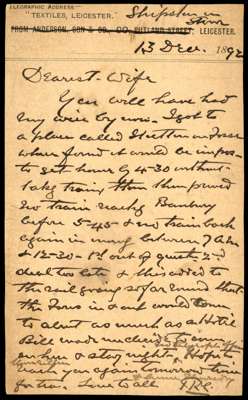 TELEGRAPHIC ADDRESS
"TEXTILES, LEICESTER." Shipston on
Stour
FROM ANDERSON, SON & CO., CO. RUTLAND STREET, LEICESTER.
13 Dec. 1892
Dearest Wife
You will have had
my wire by now. I got to
a place called Stretton on Fosse
where found it would be impos-
to get home by 4-30 without
takg train, then proved
no train reachg Banbury
before 5-45 & no train back
again in morng between 7 AM
& 12-30 - 1st out of quest, 2nd
deal too late & this added to
the rail going so far round that
the fares in & out would come
to about as much as Hotel
Bill made me decide to
here & stop night. Hope to
reach you again tomorrow time
for tea. Love to all